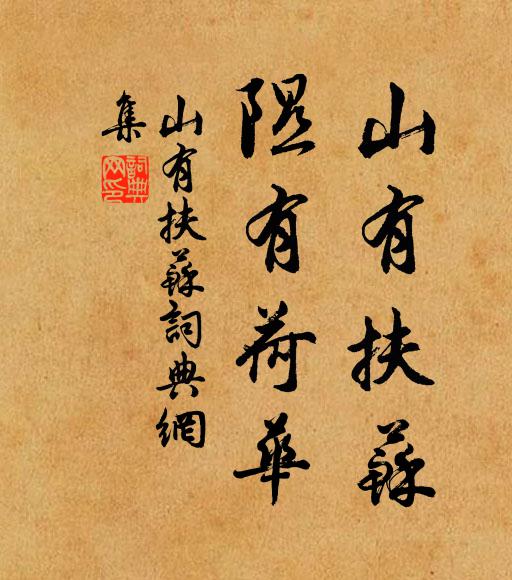 山有扶蘇
隰有荷華
山有扶蘇詞典網
集
詞典網印